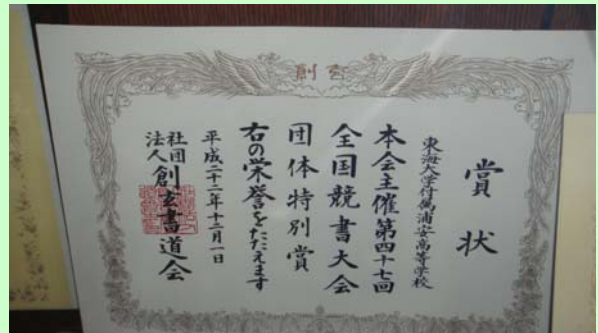 創玄
賞状
東海大学付属浦安高等学校
本会主催第四十七回
全国競書大会
団体特別賞
右の栄誉をたたえます
平成二十二年十二月一日
社団法人創玄書道会